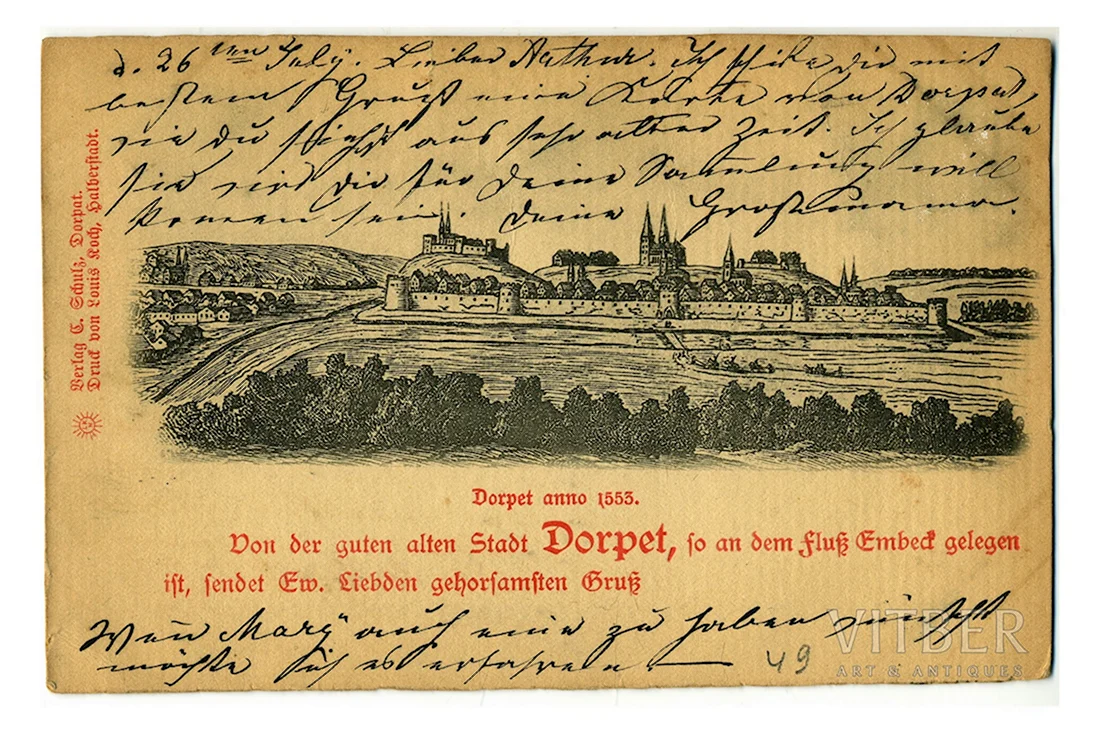 d. 26ten July. Lieber Arthur. Ich schike dir mit
bestem Gruß eine Karte von Dorpat,
wie du siehst aus sehr alter Zeit. Ich glaube
sie wird dir für deine Samlung will
komen sein. Deine Großmama.
Verlag C. Schulz, Dorpat.
Druck von Louis Koch, Halberstadt.
Dorpet anno 1553.
Von der guten alten Stadt Dorpet, so an dem Fluß Embeck gelegen
ist, sendet Ew. Liebden gehorsamsten Gruß
Wen̄ Mary auch eine zu haben wünscht
möchte ich es erfahren —
49
VITBER
ART & ANTIQUES